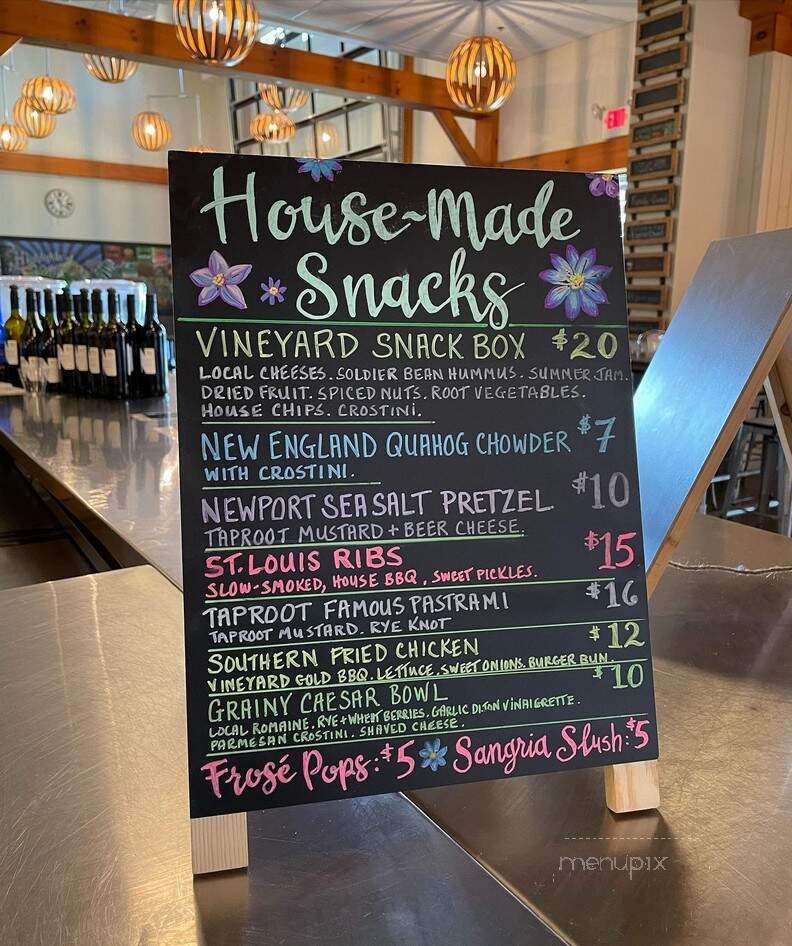 House-Made
Snacks
VINEYARD SNACK BOX $20
LOCAL CHEESES. SOLDIER BEAN HUMMUS. SUMMER JAM.
DRIED FRUIT. SPICED NUTS. ROOT VEGETABLES.
HOUSE CHIPS. CROSTINI.
NEW ENGLAND QUAHOG CHOWDER $7
WITH CROSTINI.
NEWPORT SEA SALT PRETZEL $10
TAPROOT MUSTARD + BEER CHEESE.
ST. LOUIS RIBS $15
SLOW-SMOKED, HOUSE BBQ, SWEET PICKLES.
TAPROOT FAMOUS PASTRAMI $16
TAPROOT MUSTARD. RYE KNOT
SOUTHERN FRIED CHICKEN $12
VINEYARD GOLD BBQ. LETTUCE. SWEET ONIONS. BURGER BUN.
GRAINY CAESAR BOWL $10
LOCAL ROMAINE. RYE + WHEAT BERRIES. GARLIC DIJON VINAIGRETTE.
PARMESAN CROSTINI. SHAVED CHEESE.
Frosé Pops: $5 Sangria Slush: $5
menupix